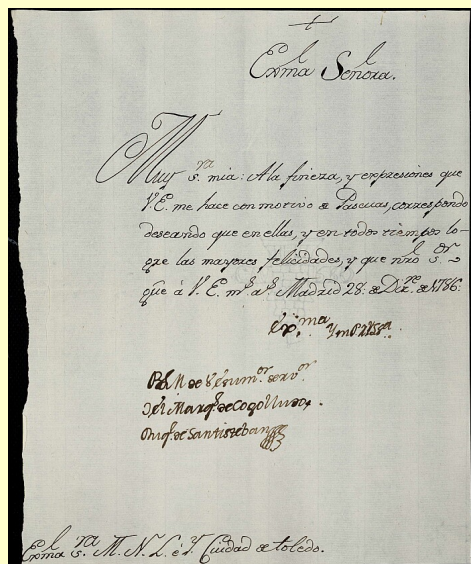 Exma Señora.
Muy s.ra mia: A la fineza, y expresiones que
V.E. me hace con motivo de Pascuas, correspondo
deseando que en ellas, y en todos tiempos lo-
gre las mayores felicidades, y que nro s.or
gue á V.E. ms. as. Madrid 28 de Dizre. de 1786.
Exma
B.L.M. de V.E. su mor. servor.
el Marqs. de Cogolludo,
Duqe. de Santisteban
Exma s.ra M. N. L. é Yl. Ciudad de toledo.